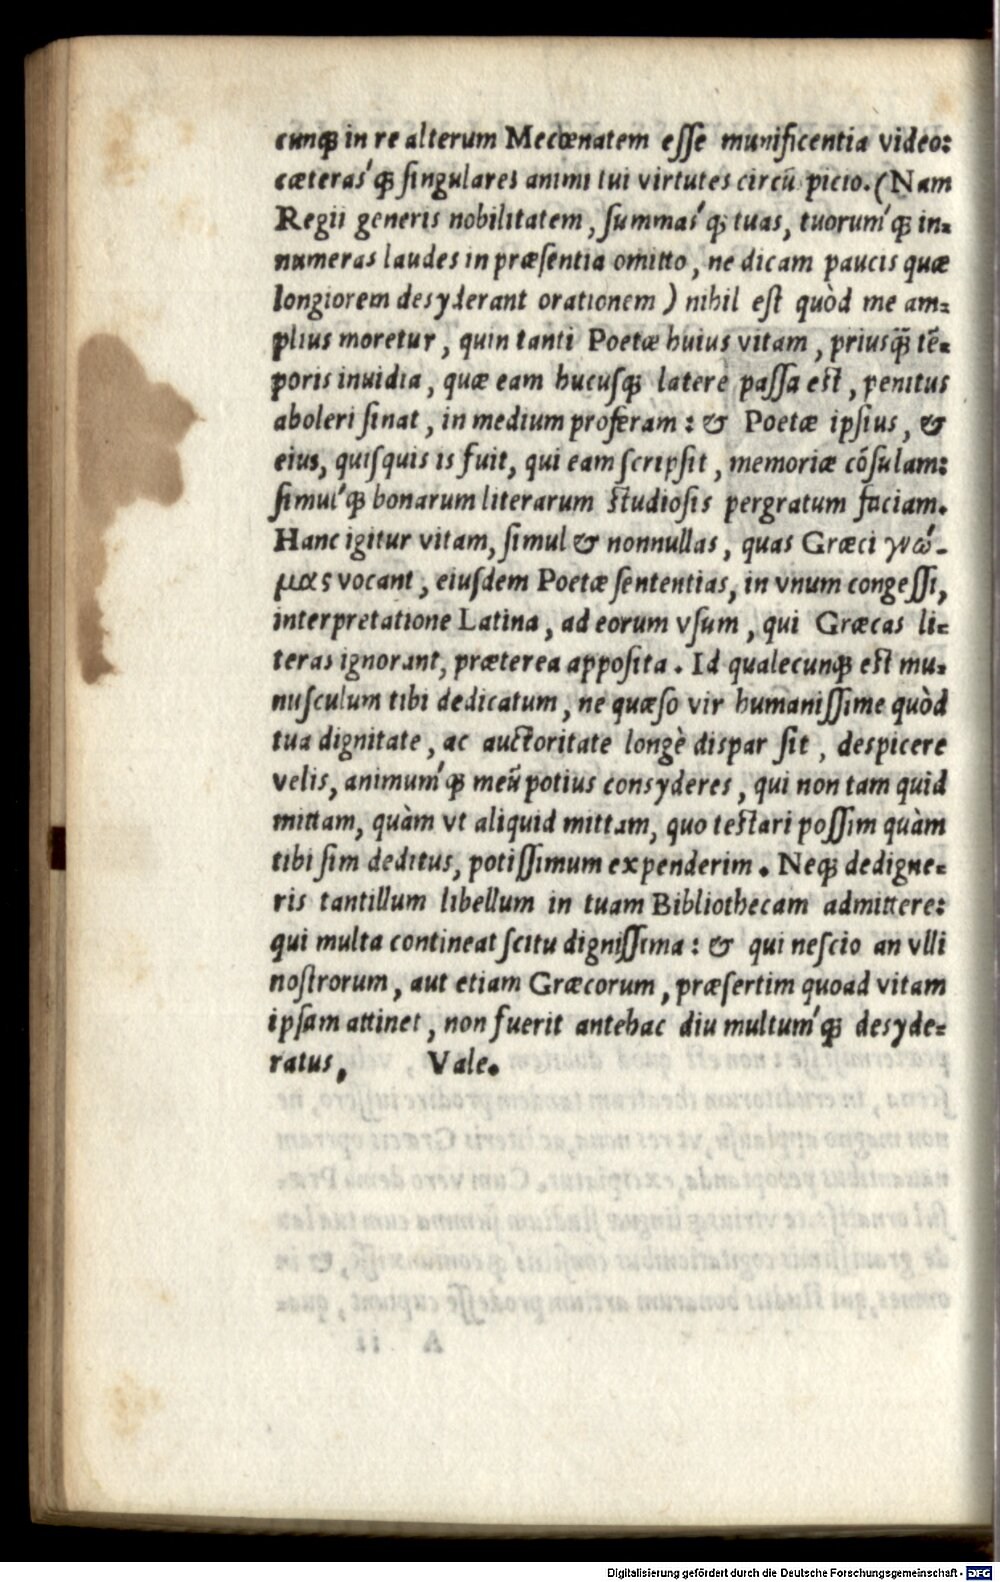 cunq́; in re alterum Mecœnatem eſſe munificentia video:
cæteraśq; ſingulares animi tui virtutes circũſpicio. (Nam
Regii generis nobilitatem, ſummaśq; tuas, tuoruḿq; in-
numeras laudes in præſentia omitto, ne dicam paucis quæ
longiorem desyderant orationem) nihil eſt quòd me am-
plius moretur, quin tanti Poetæ huius vitam, priusq̃; tẽ-
poris inuidia, quæ eam hucuſq; latere paſſa eſt, penitus
aboleri ſinat, in medium proferam: & Poetæ ipſius, &
eius, quiſquis is fuit, qui eam ſcripſit, memoriæ cõſulam:
ſimuĺq; bonarum literarum ſtudioſis pergratum faciam.
Hanc igitur vitam, ſimul & nonnullas, quas Græci γνώ-
μας vocant, eiuſdem Poetæ ſententias, in vnum congeſſi,
interpretatione Latina, ad eorum vſum, qui Græcas li-
teras ignorant, præterea appoſita. Id qualecunq; eſt mu-
nuſculum tibi dedicatum, ne quæſo vir humaniſſime quòd
tua dignitate, ac auctoritate longè diſpar ſit, deſpicere
velis, animuḿq; meũ potius consyderes, qui non tam quid
mittam, quàm vt aliquid mittam, quo teſtari poſſim quàm
tibi ſim deditus, potiſſimum expenderim. Neq; dedigne-
ris tantillum libellum in tuam Bibliothecam admittere:
qui multa contineat ſcitu digniſſima: & qui neſcio an vlli
noſtrorum, aut etiam Græcorum, præſertim quoad vitam
ipſam attinet, non fuerit antehac diu multuḿq; desyde-
ratus, Vale.
Digitalisierung gefördert durch die Deutsche Forschungsgemeinschaft - DFG